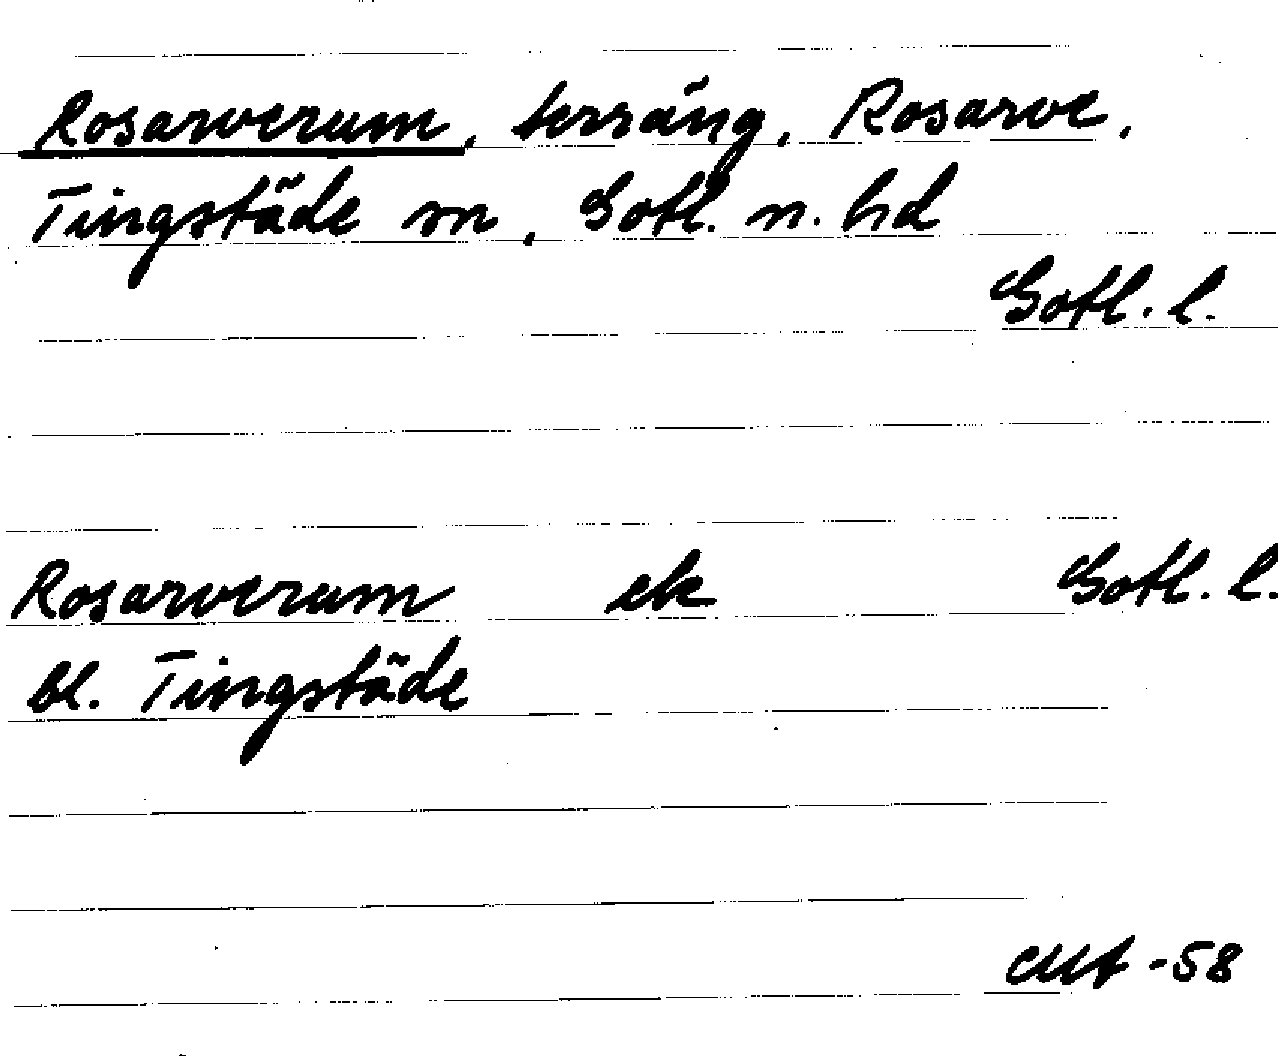 Rosarverum, terräng, Rosarve,
Tingstäde sn, Gotl. n. hd
Gotl. l.
Rosarverum ek Gotl. l.
bl. Tingstäde
-58